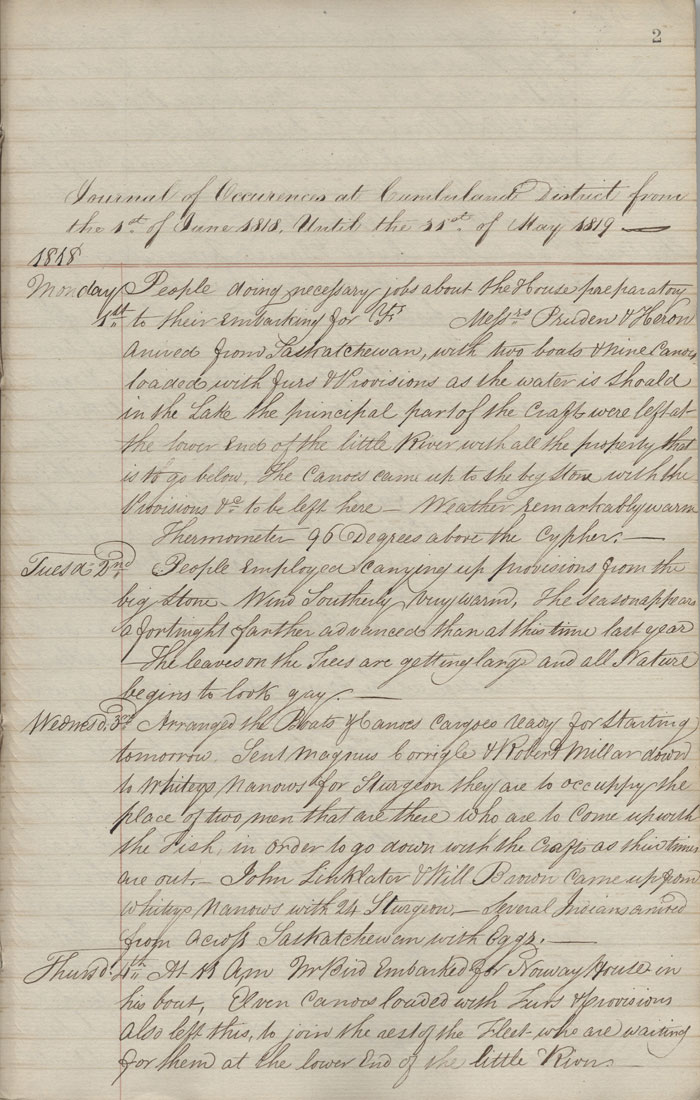 2
Journal of Occurences at Cumberland District from
the 1st of June 1818, Until the 31st of May 1819
1818
Monday People doing necessary jobs about the House preparatory
1st to their Embarking for YF Messrs Pruden & Heron
arrived from Saskatchewan, with two boats & nine Canoes
loaded with furs & Provisions as the water is Shoald
in the Lake the principal part of the Craft were left at
the lower End of the little River with all the property that
is to go below, The Canoes came up to the big Stone with the
Provisions &c to be left here — Weather remarkably warm
Thermometer 96 Degrees above the Cypher. —
Tuesd: 2nd People Employed carrying up provisions from the
big Stone — Wind Southerly very warm, The season appears
a fortnight farther advanced than at this time last year
— The leaves on the Trees are getting large and all Nature
begins to look gay. —
Wednesd, 3rd Arranged the Boats & Canoes Cargoes ready for starting
tomorrow. Sent Magnus Corrigle & Robert Millar down
to Whiteys Narrows for Sturgeon they are to occuppy the
place of two men that are there who are to Come up with
the Fish, in order to go down with the Crafts as their times
are out. — John Linklater & Will Brown came up from
Whiteys Narrows with 24 Sturgeon — Several Indians arrived
from across Saskatchewan with Eggs. —
Thursd: 4th At 11 Am Mr Bird Embarked for Norway House in
his boat, Eleven Canoes loaded with Furs & Provisions
also left this, to join the rest of the Fleet who are waiting
for them at the lower End of the little River —